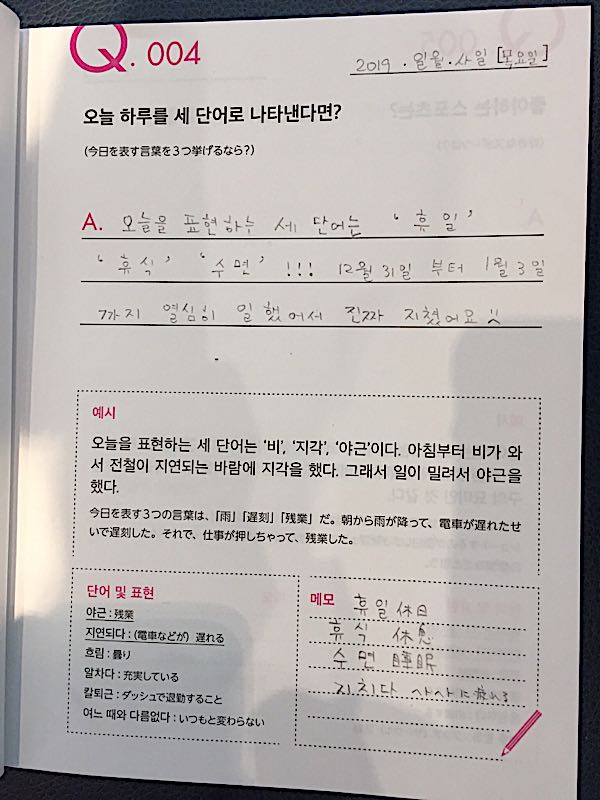 Q. 004
2019 . 일월 . 사일 [목요일]
오늘 하루를 세 단어로 나타낸다면?
(今日を表す言葉を3つ挙げるなら?)
A. 오늘을 표현하는 세 단어는 '휴일'
'휴식' '수면' !!! 12월 31일 부터 1월 3일
7까지 열심히 일했어서 진짜 지쳤어요
예시
오늘을 표현하는 세 단어는 '비', '지각', '야근'이다. 아침부터 비가 와
서 전철이 지연되는 바람에 지각을 했다. 그래서 일이 밀려서 야근을
했다.
今日を表す3つの言葉は、「雨」「遅刻」「残業」だ。朝から雨が降って、電車が遅れたせ
いで遅刻した。それで、仕事が押しちゃって、残業した。
단어 및 표현
야근 : 残業
지연되다 : (電車などが) 遅れる
흐림 : 曇り
알차다 : 充実している
칼퇴근 : ダッシュで退勤すること
여느 때와 다름없다 : いつもと変わらない
메모
휴일 休日
휴식 休息
수면 睡眠
지치다 ヘトヘトに疲れる